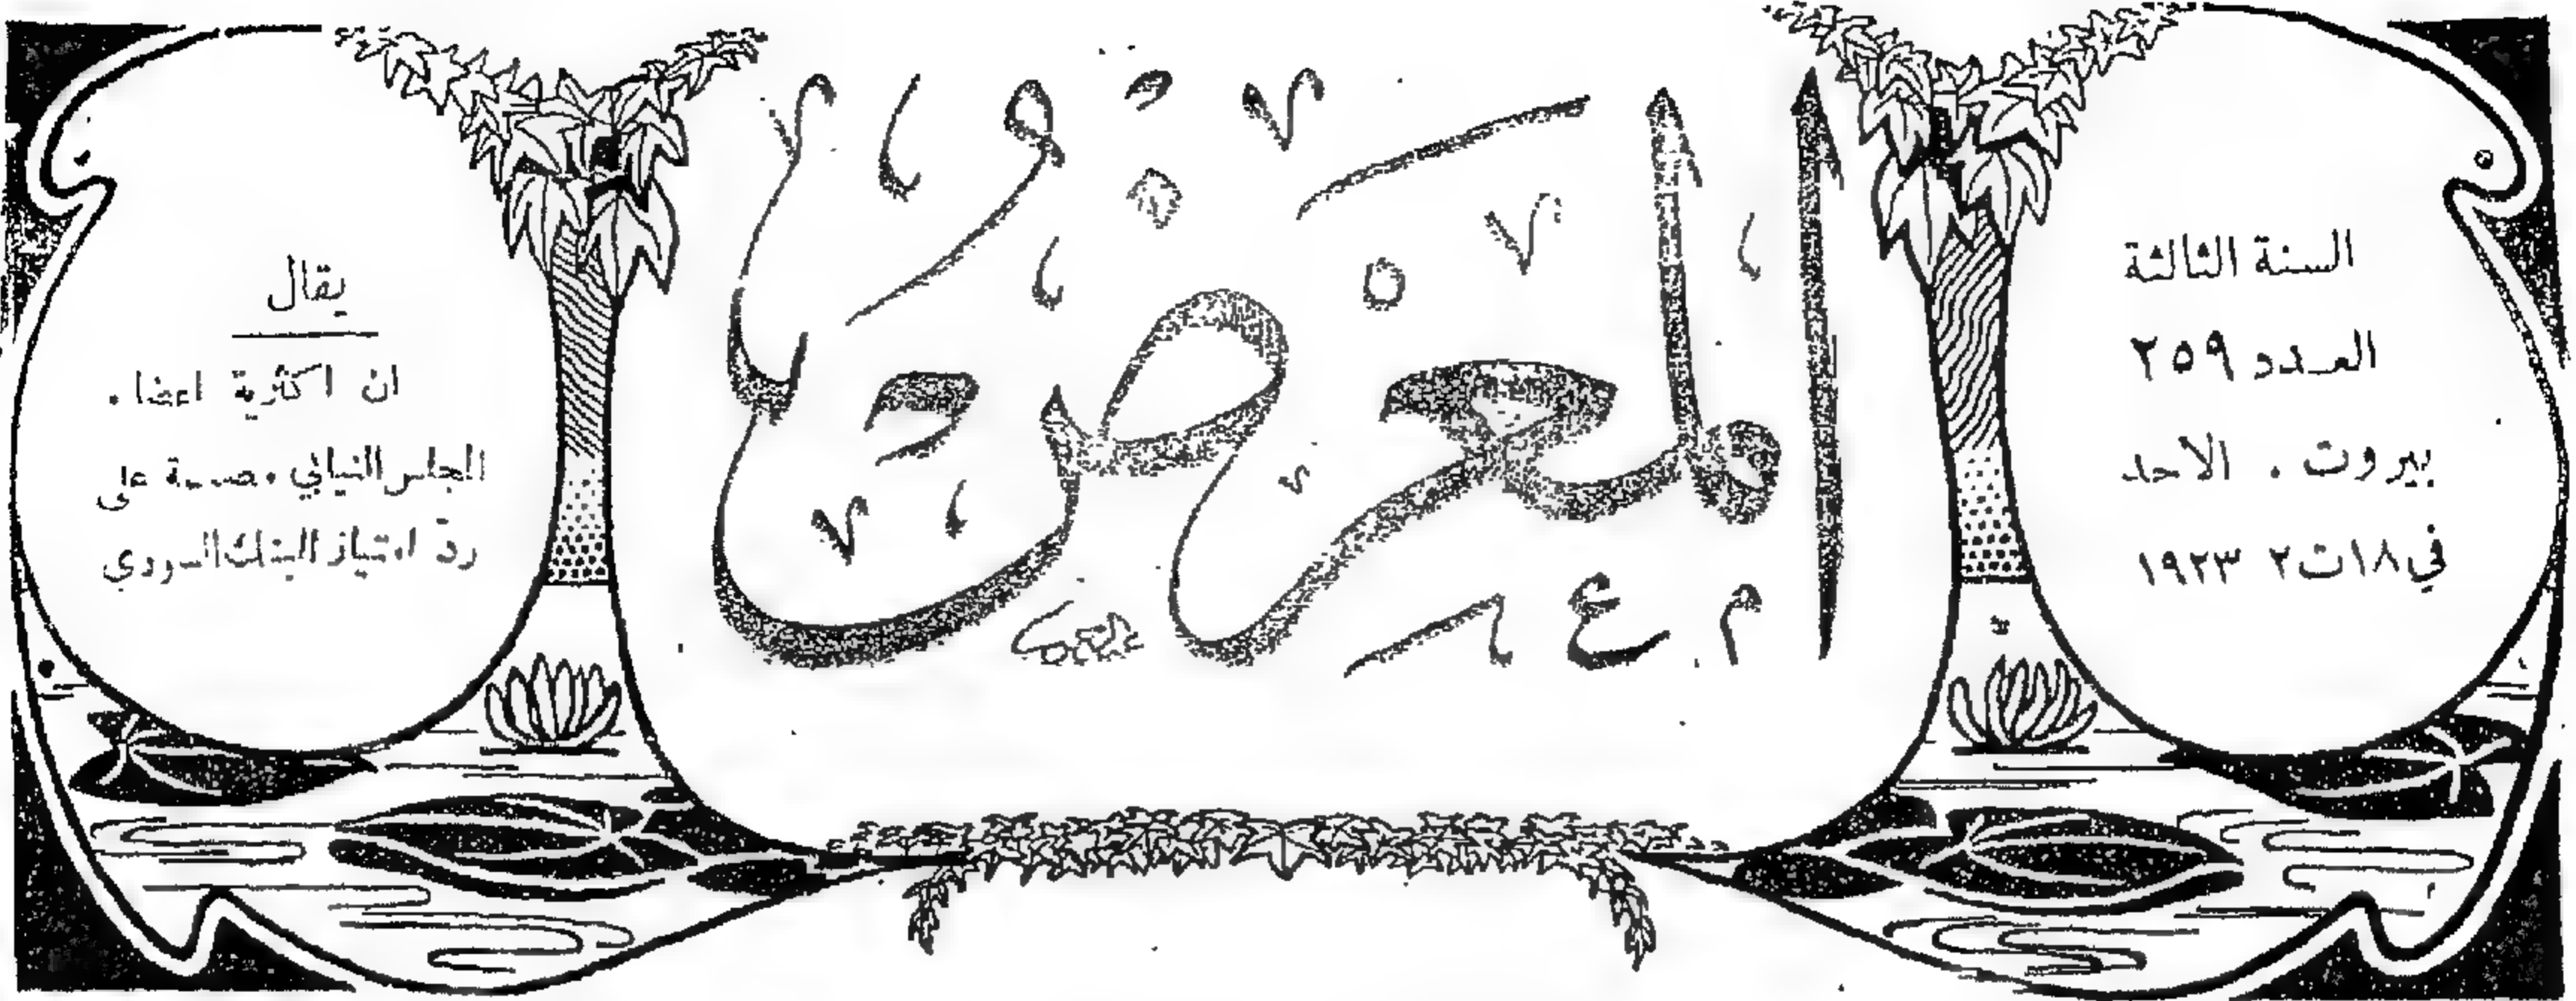 السنة الثالثة
العدد ٢٥٩
بيروت . الاحد
في ١٨ ت ٢ ١٩٢٣
المعرض
يقال
ان اكثرية اعضاء
المجلس النيابي مصممة على
ردّ امتياز البنك السوري